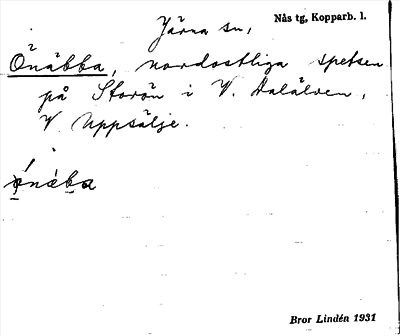 Nås tg, Kopparb. l.
Järna sn,
Önäbba, nordostliga spetsen
på Storön i V. Dalälven,
V. Uppsälje.
Bror Lindén 1931